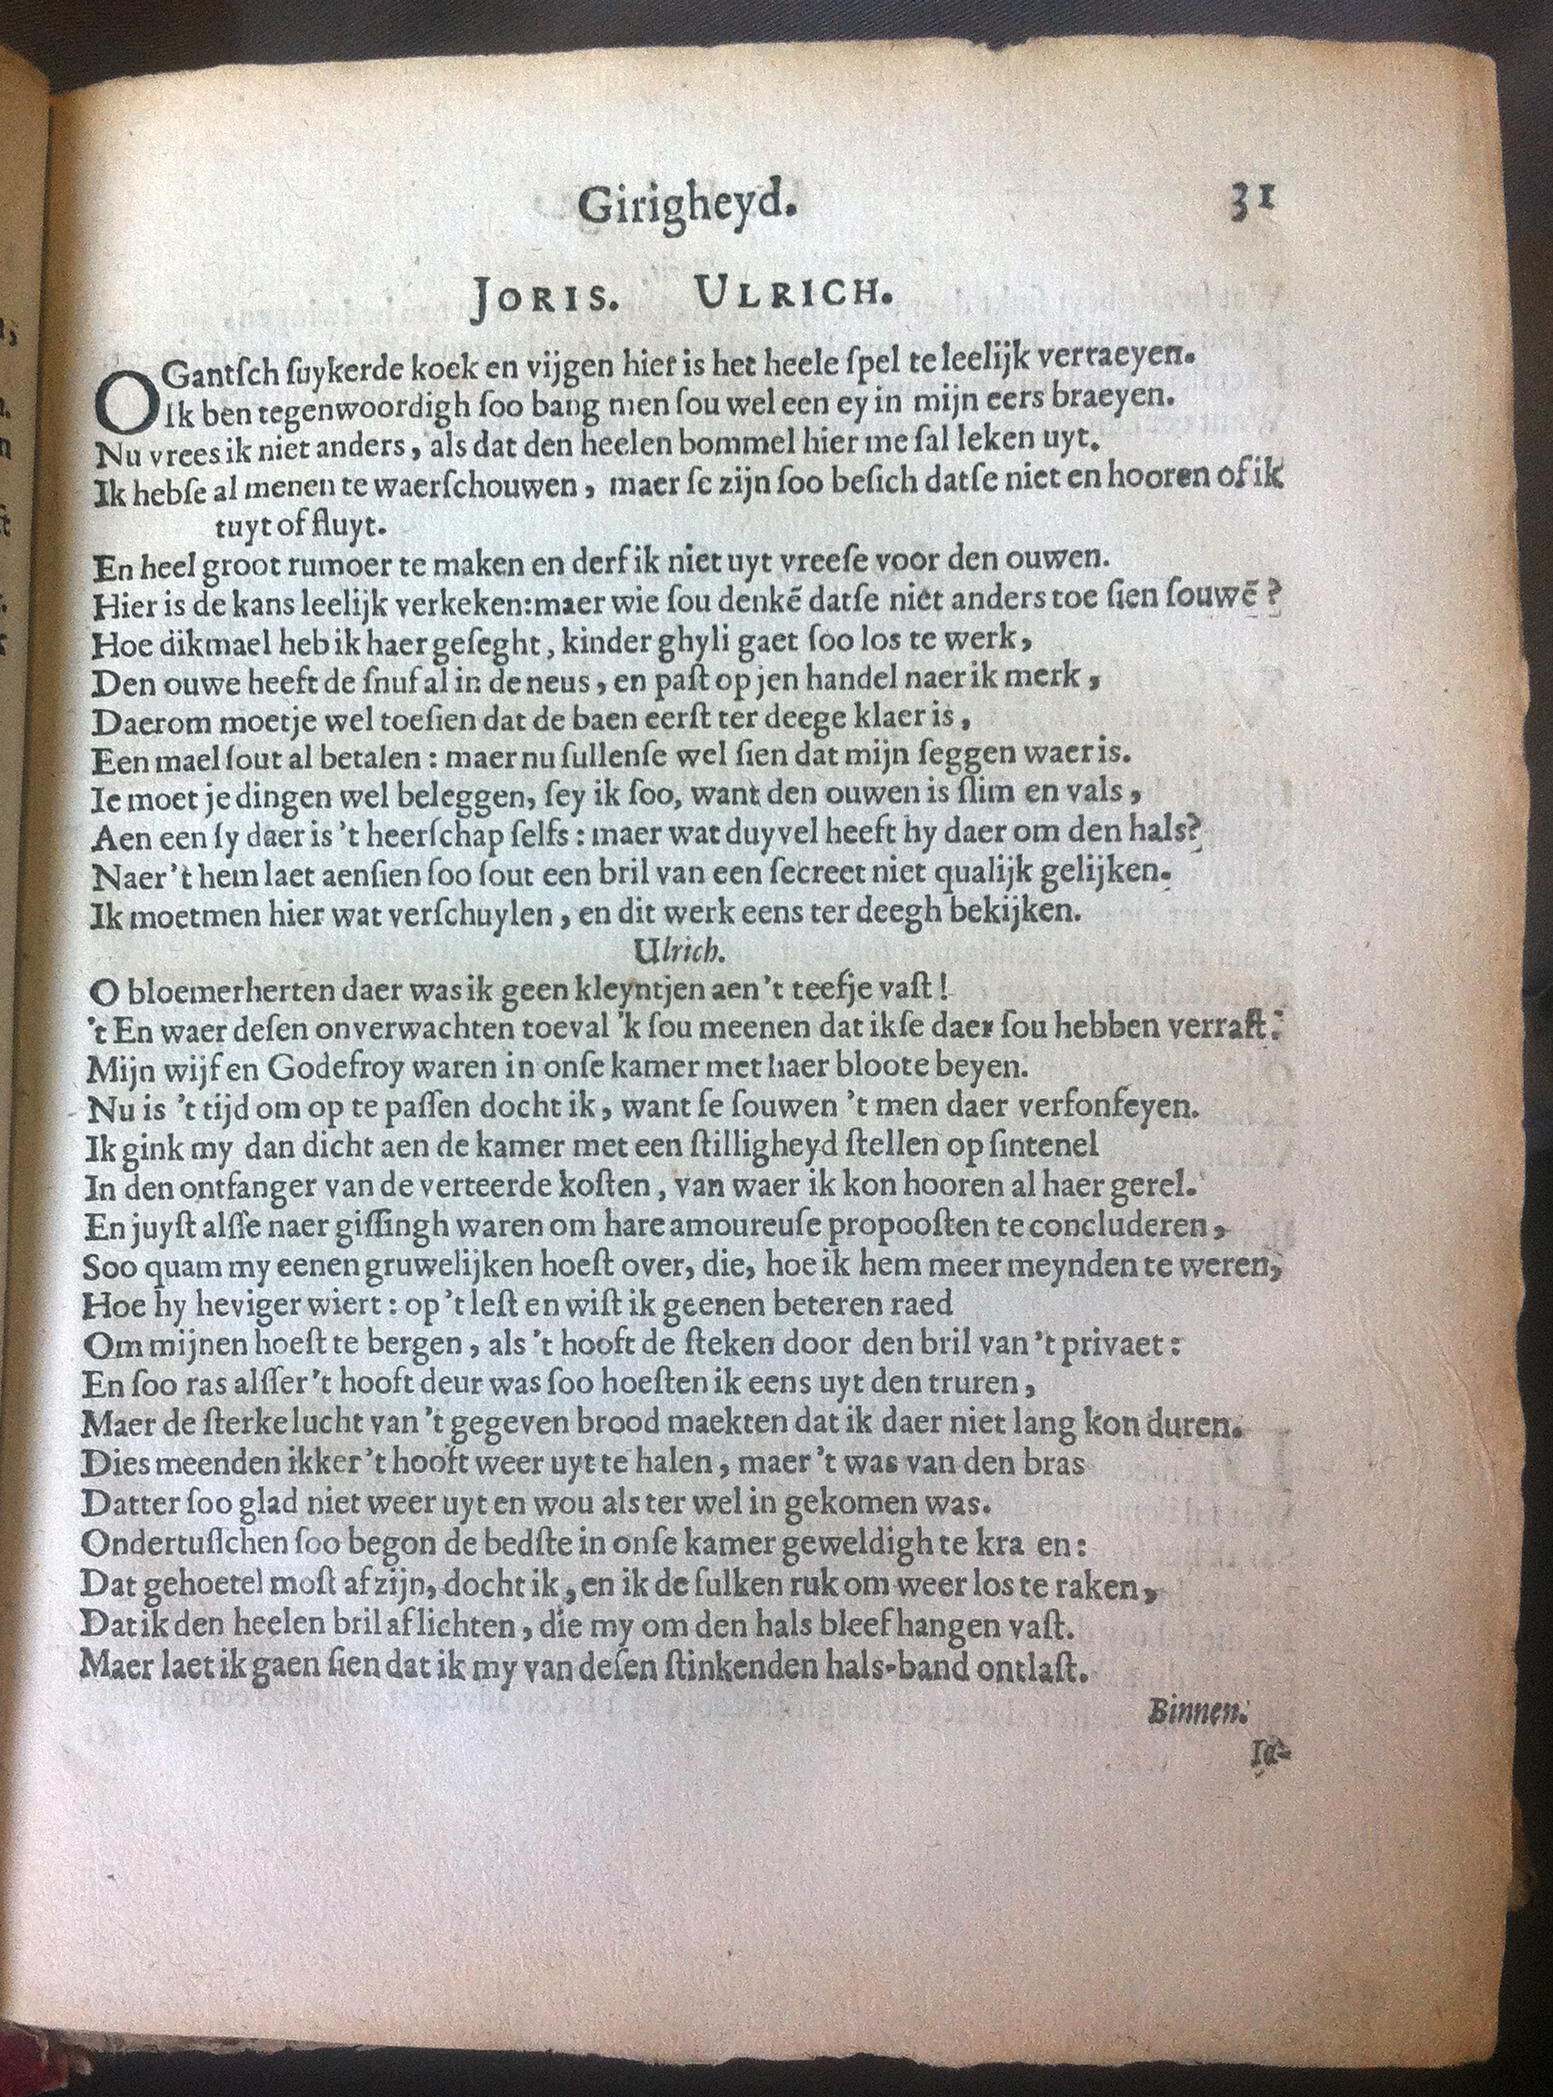 Girigheyd. 31
JORIS. ULRICH.
O Gantſch ſuykerde koek en vijgen hier is het heele ſpel te leelijk verraeyen.
Ik ben tegenwoordigh ſoo bang men ſou wel een ey in mijn eers braeyen.
Nu vrees ik niet anders, als dat den heelen bommel hier me ſal leken uyt.
Ik hebſe al menen te waerſchouwen, maer ſe zijn ſoo beſich datſe niet en hooren of ik
tuyt of fluyt.
En heel groot rumoer te maken en derf ik niet uyt vreeſe voor den ouwen.
Hier is de kans leelijk verkeken: maer wie ſou denkẽ datſe niet anders toe ſien ſouwẽ?
Hoe dikmael heb ik haer geſeght, kinder ghyli gaet ſoo los te werk,
Den ouwe heeft de ſnuf al in de neus, en paſt op jen handel naer ik merk,
Daerom moetje wel toeſien dat de baen eerſt ter deege klaer is,
Een mael ſout al betalen: maer nu ſullenſe wel ſien dat mijn ſeggen waer is.
Ie moet je dingen wel beleggen, ſey ik ſoo, want den ouwen is ſlim en vals,
Aen een ſy daer is 't heerſchap ſelfs: maer wat duyvel heeft hy daer om den hals?
Naer 't hem laet aenſien ſoo ſout een bril van een ſecreet niet qualijk gelijken.
Ik moet men hier wat verſchuylen, en dit werk eens ter deegh bekijken.
Ulrich.
O bloemerherten daer was ik geen kleyntjen aen 't teefje vaſt!
't En waer deſen onverwachten toeval 'k ſou meenen dat ikſe daer ſou hebben verraſt:
Mijn wijf en Godefroy waren in onſe kamer met haer bloote beyen.
Nu is 't tijd om op te paſſen docht ik, want ſe ſouwen 't men daer verfonfeyen.
Ik gink my dan dicht aen de kamer met een ſtilligheyd ſtellen op ſintenel
In den ontfanger van de verteerde koſten, van waer ik kon hooren al haer gerel.
En juyſt alſſe naer giſſingh waren om hare amoureuſe propooſten te concluderen,
Soo quam my eenen gruwelijken hoeſt over, die, hoe ik hem meer meynden te weren,
Hoe hy heviger wiert: op 't leſt en wiſt ik geenen beteren raed
Om mijnen hoeſt te bergen, als 't hooft de ſteken door den bril van 't privaet:
En ſoo ras alſſer 't hooft deur was ſoo hoeſten ik eens uyt den truren,
Maer de ſterke lucht van 't gegeven brood maekten dat ik daer niet lang kon duren.
Dies meenden ikker 't hooft weer uyt te halen, maer 't was van den bras
Datter ſoo glad niet weer uyt en wou als ter wel in gekomen was.
Ondertuſſchen ſoo begon de bedſte in onſe kamer geweldigh te kra en:
Dat gehoetel moſt af zijn, docht ik, en ik de ſulken ruk om weer los te raken,
Dat ik den heelen bril aflichten, die my om den hals bleef hangen vaſt.
Maer laet ik gaen ſien dat ik my van deſen ſtinkenden hals-band ontlaſt.
Binnen.
Ia-